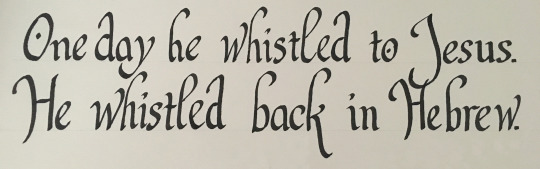 One day he whistled to Jesus.
He whistled back in Hebrew.